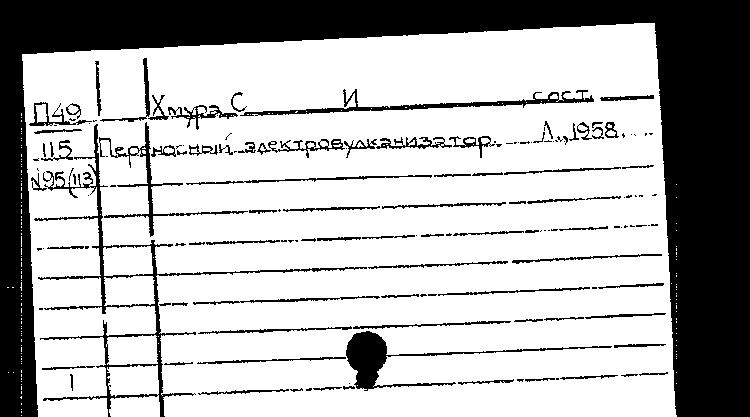 П49 Хмура С И , сост.
115 Переносный электровулканизатор. Л., 1958.
№95(113)
1